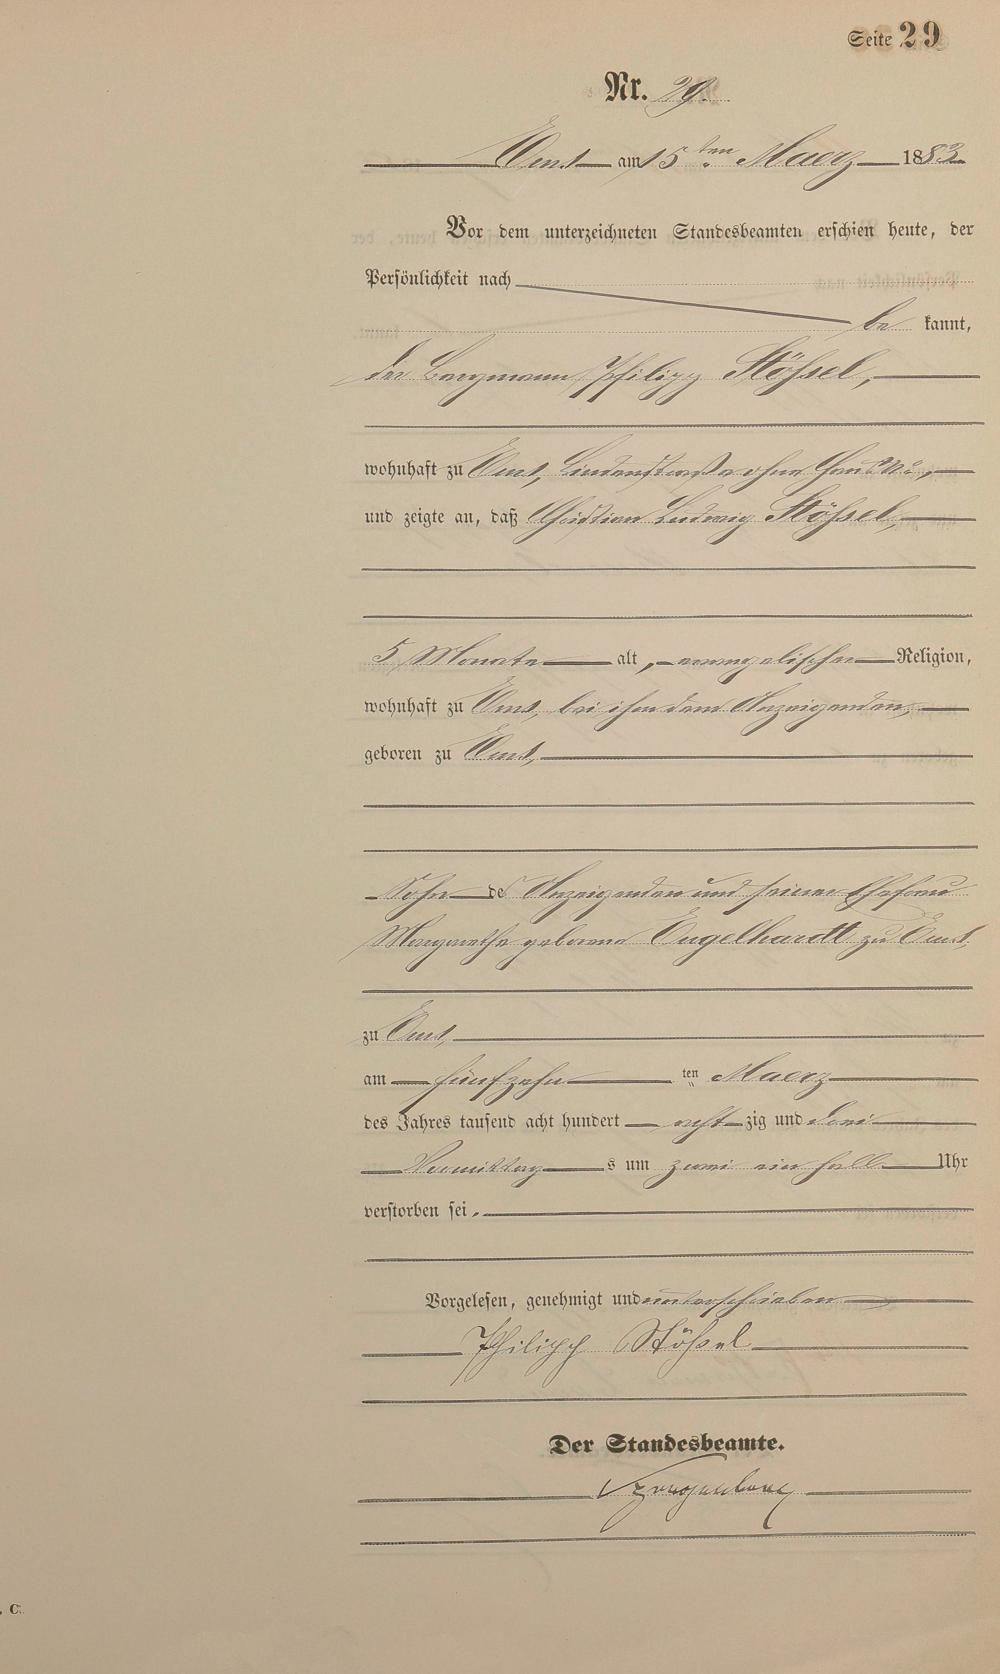 Seite 29
Nr. 29.
Ems am 15ten Maerz 1883.
Vor dem unterzeichneten Standesbeamten erschien heute, der
Persönlichkeit nach
be kannt,
der Bergmann Philipp Stößel,
wohnhaft zu Ems, Lindenstraße ohne Haus No.,
und zeigte an, daß Christian Ludwig Stößel,
5 Monate alt, evangelischer Religion,
wohnhaft zu Ems, bei ihm dem Anzeigenden,
geboren zu Ems,
Sohn des Anzeigenden und seiner Ehefrau
Margarethe geborene Engelhardt zu Ems,
zu Ems,
am fünfzehn ten Maerz
des Jahres tausend acht hundert acht zig und drei
Vormittag s um zwei ein halb Uhr
verstorben sei.
Vorgelesen, genehmigt und unterschrieben
Philipp Stößel
Der Standesbeamte.
. C.